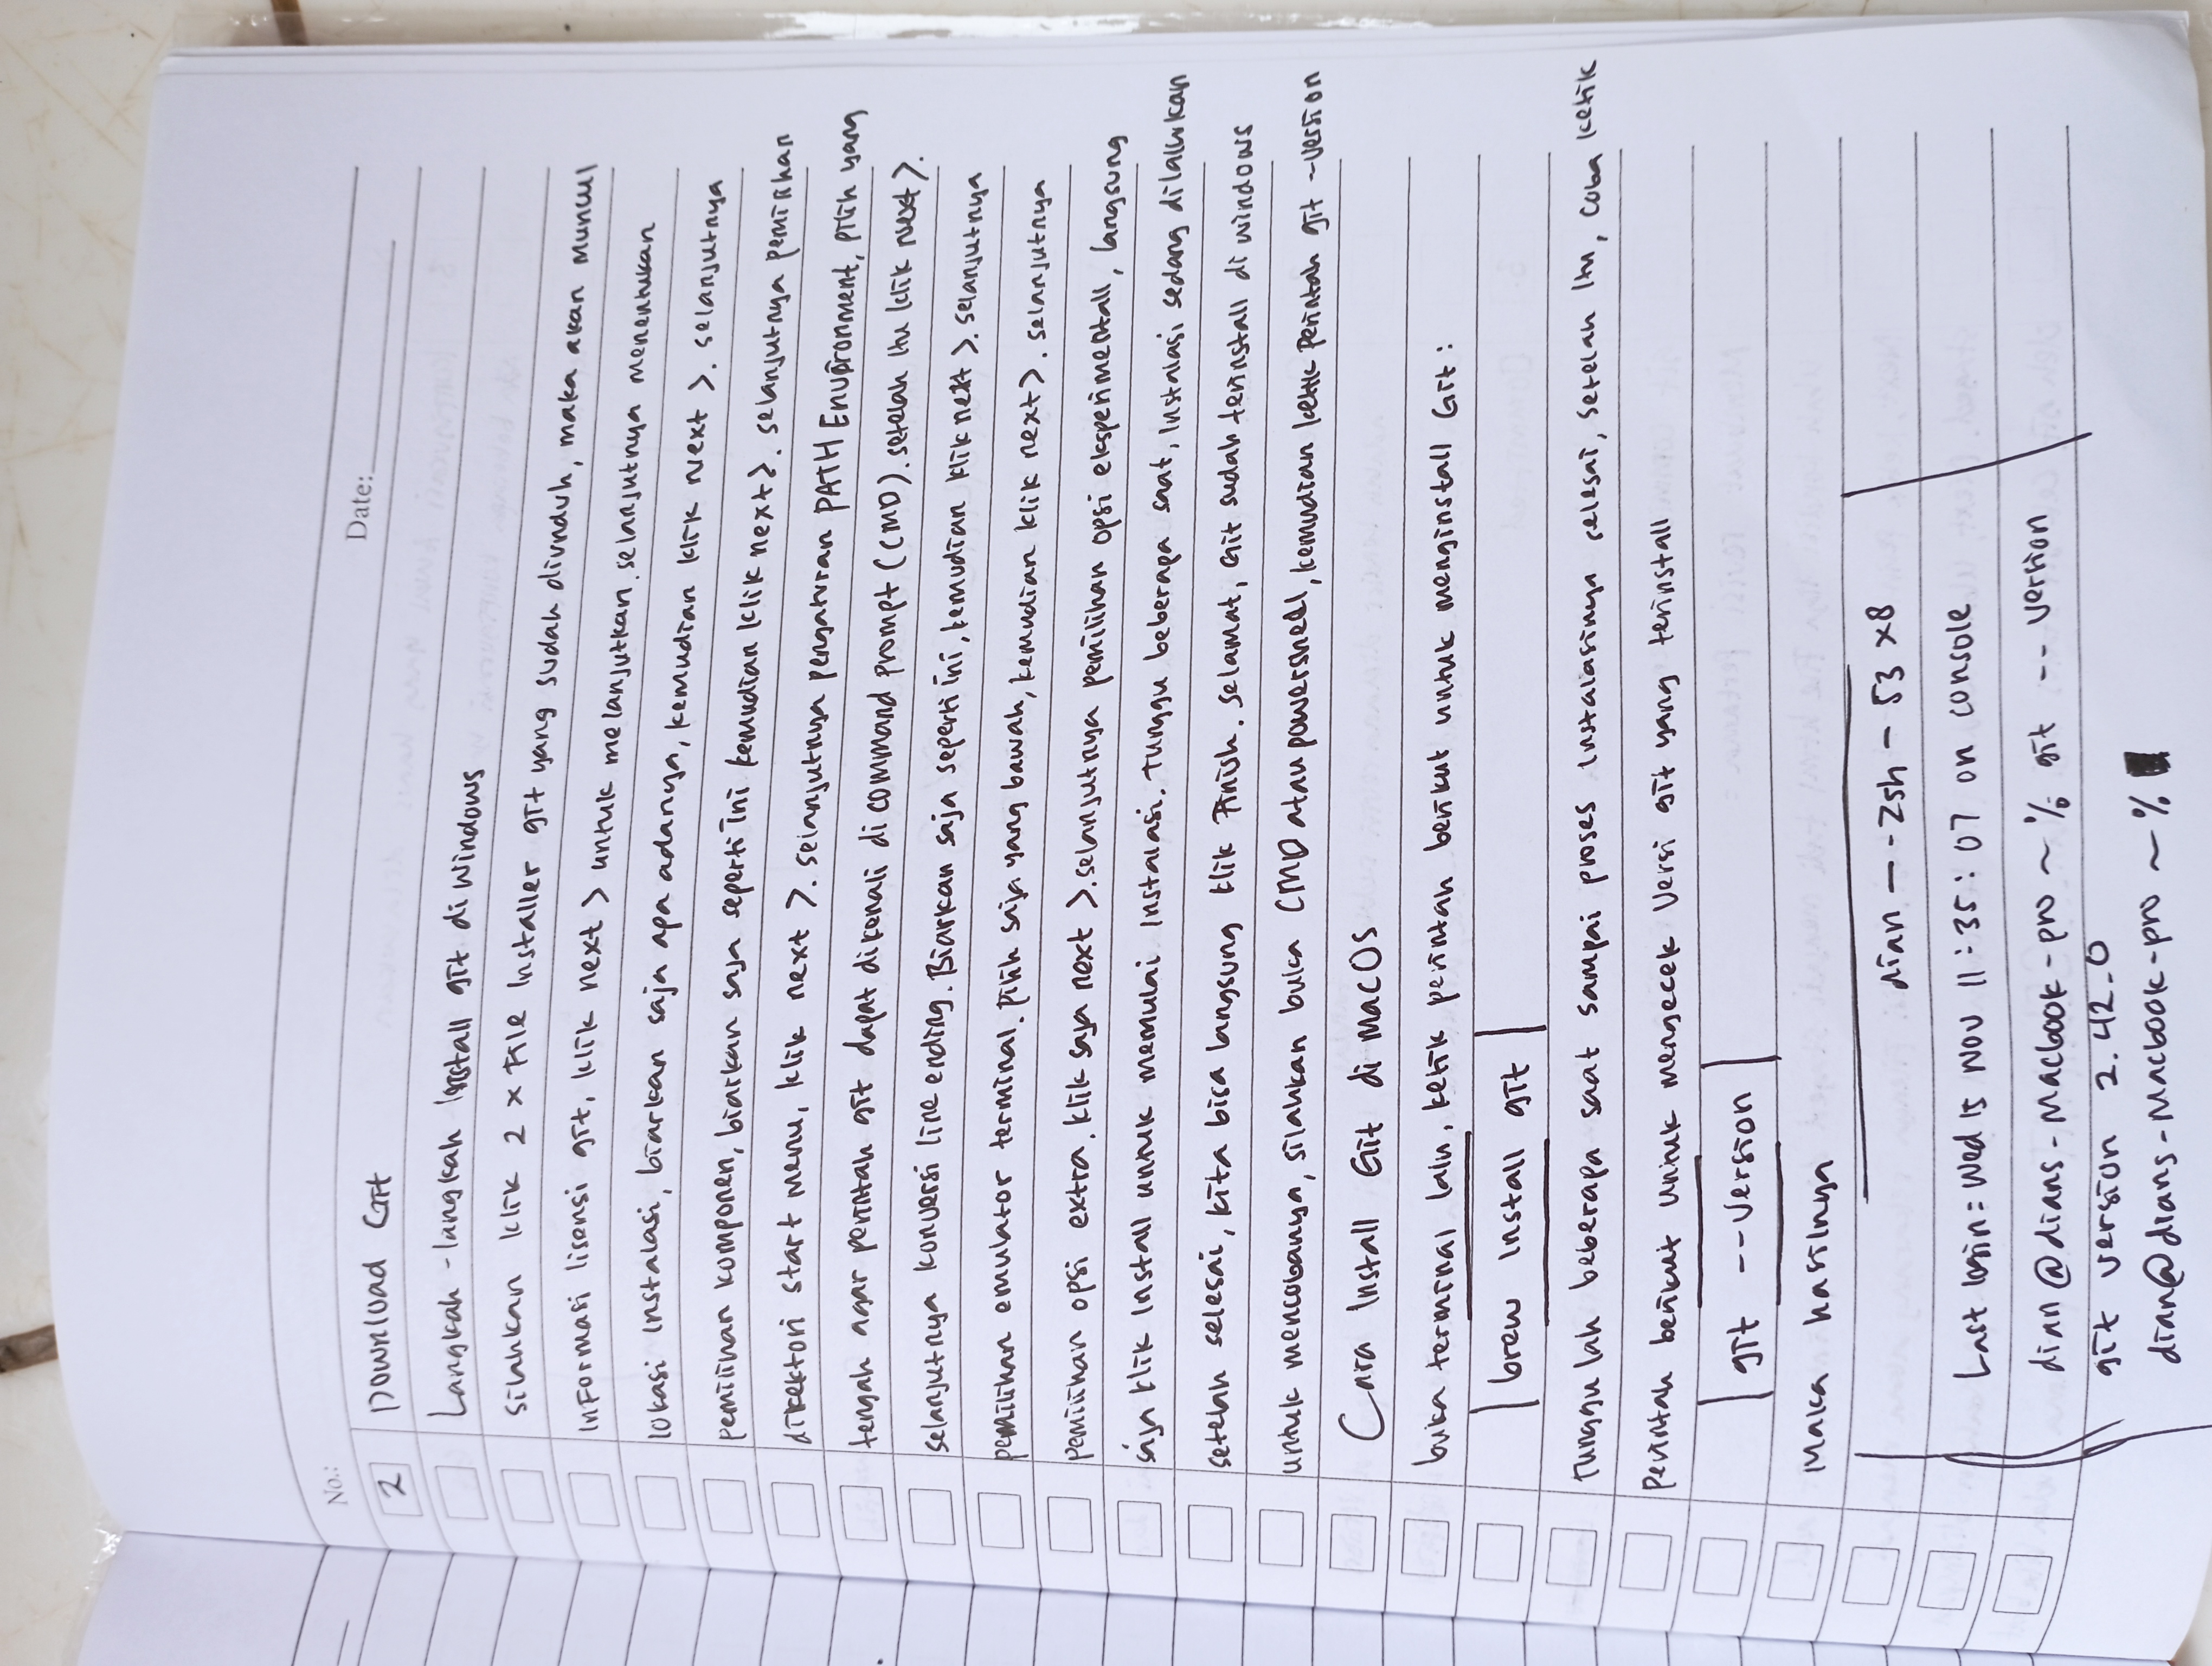 No.:
Date:
2 Download Git
Langkah-langkah Install git di windows
silahkan klik 2 x file Installer git yang sudah diunduh, maka akan muncul
informasi lisensi git, klik next > untuk melanjutkan. selanjutnya menentukan
lokasi instalasi, biarkan saja apa adanya, kemudian klik next >. selanjutnya
pemilihan komponen, biarkan saja seperti ini kemudian klik next>. selanjutnya pemilihan
direktori start menu, klik next >. selanjutnya pengaturan PATH Environment, pilih yang
tengah agar perintah git dapat dikenali di command prompt (CMD). setelah itu klik next >.
selanjutnya konversi line ending. Biarkan saja seperti ini, kemudian klik next >. selanjutnya
pemilihan emulator terminal. pilih saja yang bawah, kemudian klik next >. selanjutnya
pemilihan opsi extra. klik saja next >. selanjutnya pemilihan opsi eksperimentall, langsung
saja klik Install untuk memulai instalasi. Tunggu beberapa saat, instalasi sedang dilakukan
setelah selesai, kita bisa langsung klik finish. selamat, git sudah terinstall di windows
untuk mencobanya, silahkan buka CMD atau powershell, kemudian ketik perintah git -version
Cara Install Git di MacOs
buka terminal lalu, ketik perintah berikut untuk menginstall Git :
brew install git
Tunggu lah beberapa saat sampai proses instalasinya selesai, setelah itu, coba ketik
Perintah berikut untuk mengecek Versi git yang terinstall
git --version
Maka hasilnya
dian — -zsh - 53 x8
Last login = Wed 15 Nov 11:35: 07 on console
dian@dians-Macbook-pro ~ % git --version
git version 2.42.0
dian@dians-Macbook-pro ~ %